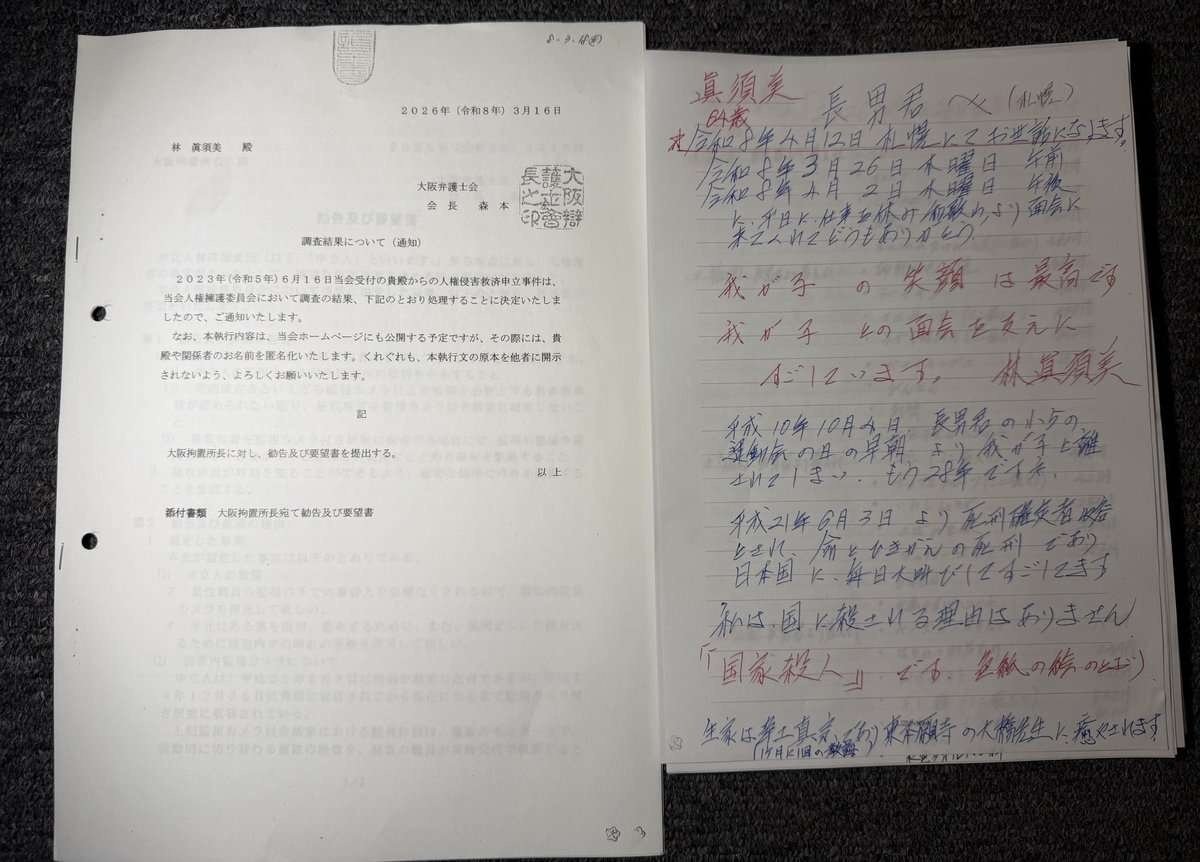 8.3.18
2026年(令和8年)3月16日
林 眞須美 殿
大阪弁護士会
会長 森本
大阪辯
護士会
長之印
調査結果について(通知)
2023年(令和5年)6月16日当会受付の貴殿からの人権侵害救済申立事件は、
当会人権擁護委員会において調査の結果、下記のとおり処理することに決定いたしま
したので、ご通知いたします。
なお、本執行内容は、当会ホームページにも公開する予定ですが、その際には、貴
殿や関係者のお名前を匿名化いたします。くれぐれも、本執行文の原本を他者に開示
されないよう、よろしくお願いいたします。
記
大阪拘置所長に対し、勧告及び要望書を提出する。
以上
添付書類 大阪拘置所長宛て勧告及び要望書
3
眞須美 長男君へ(札幌)
64歳
令和8年4月12日 札幌にてお世話になります。
令和8年3月26日 木曜日 午前
令和8年4月2日 木曜日 午後
に、平日に、仕事を休み 和歌山より面会に
来てくれてどうもありがとう。
我が子の笑顔は最高です
我が子との面会を支えに
すごしています。 林眞須美
平成10年10月4日、長男君の小5の
運動会の日の早朝より我が子と離
されてしまい、もう28年です
平成21年6月3日より死刑確定者
とされ、命とひきかえの死刑であり
日本国に、毎日大叫びしてすごしてます
私は、国に殺される理由はありません
「国家殺人」です。色紙の絵のとおり
生家は浄土真宗であり東本願寺の大橋先生に、癒やされます
(1ヶ月に1回の教誨)